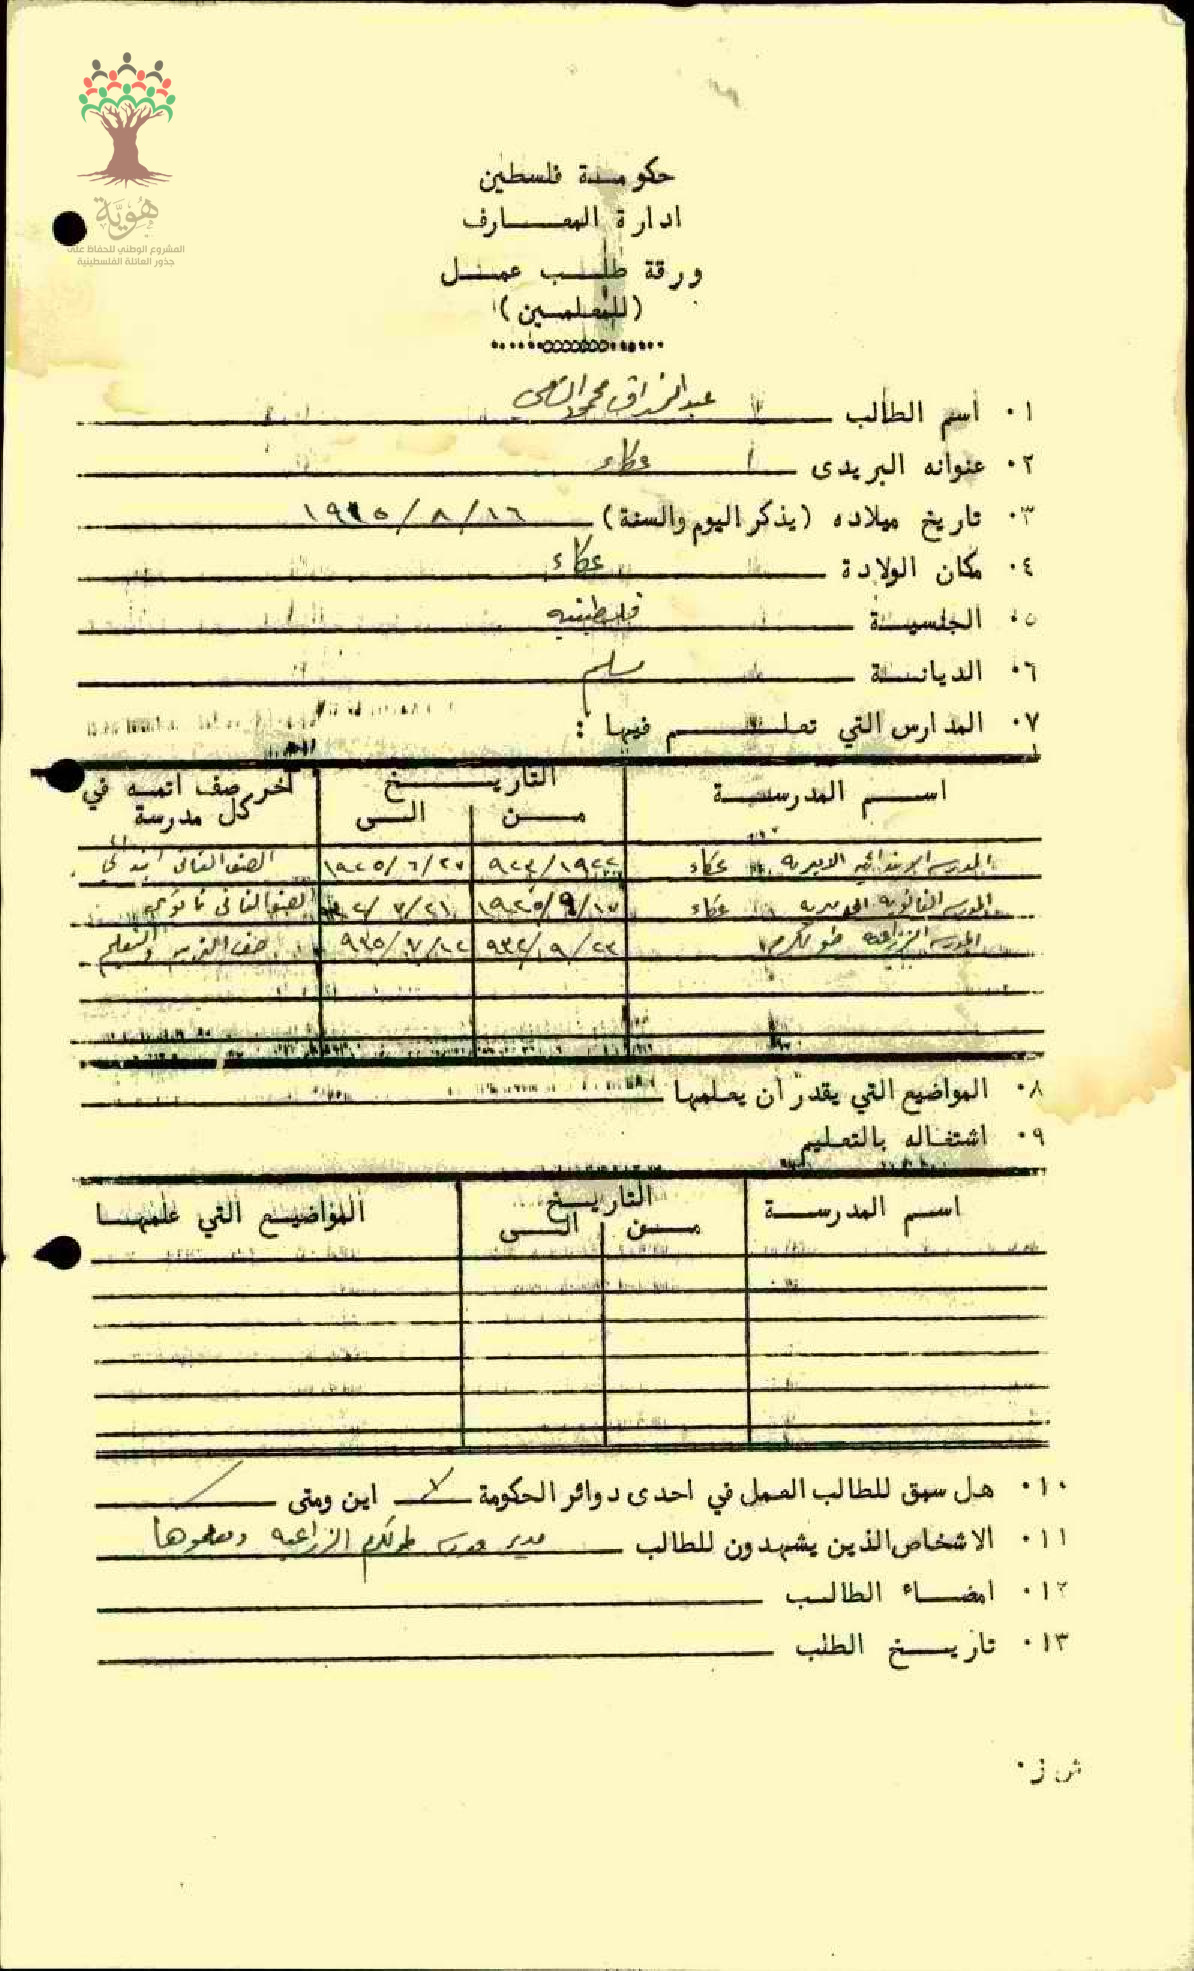 هُوِيَّة
المشروع الوطني للحفاظ على
جذور العائلة الفلسطينية
حكومة فلسطين
ادارة المعارف
ورقة طلب عمل
(للمعلمين)
١٠ اسم الطالب عبد الرزاق محمد
٢٠ عنوانه البريدى عكاء
٣٠ تاريخ ميلاده (يذكر اليوم والسنة) ١٦/٨/١٩١٥
٤٠ مكان الولادة عكاء
٥٠ الجنسية فلسطينيه
٦٠ الديانة مسلم
٧٠ المدارس التي تعلم فيها :
اسم المدرسة التاريخ آخر صف اتمه في
من الى كل مدرسة
المدرسه الابتدائيه الاميريه عكاء ١٩٢٢/٩٢٣ ١٩٢٥/٦/٢٧ الصف الثاني ابتدائي
المدرسه الثانويه الاميريه عكاء ١٩٢٥/٩/١٧ الصف الثاني ثانوي
المدرسه الزراعيه طولكرم ٩٣٢/٩/٢٣ ٩٣٥/٧/١٢ صف التدريب والتعليم
٨٠ المواضيع التي يقدر أن يعلمها
٩٠ اشتغاله بالتعليم
اسم المدرسة التاريخ المواضيع التي علمها
من الى
١٠٠ هل سبق للطالب العمل في احدى دوائر الحكومة لا اين ومتى
١١٠ الاشخاص الذين يشهدون للطالب مدير مدرسه طولكرم الزراعيه ومعلموها
١٢٠ امضاء الطالب
١٣٠ تاريخ الطلب
ش ز٠